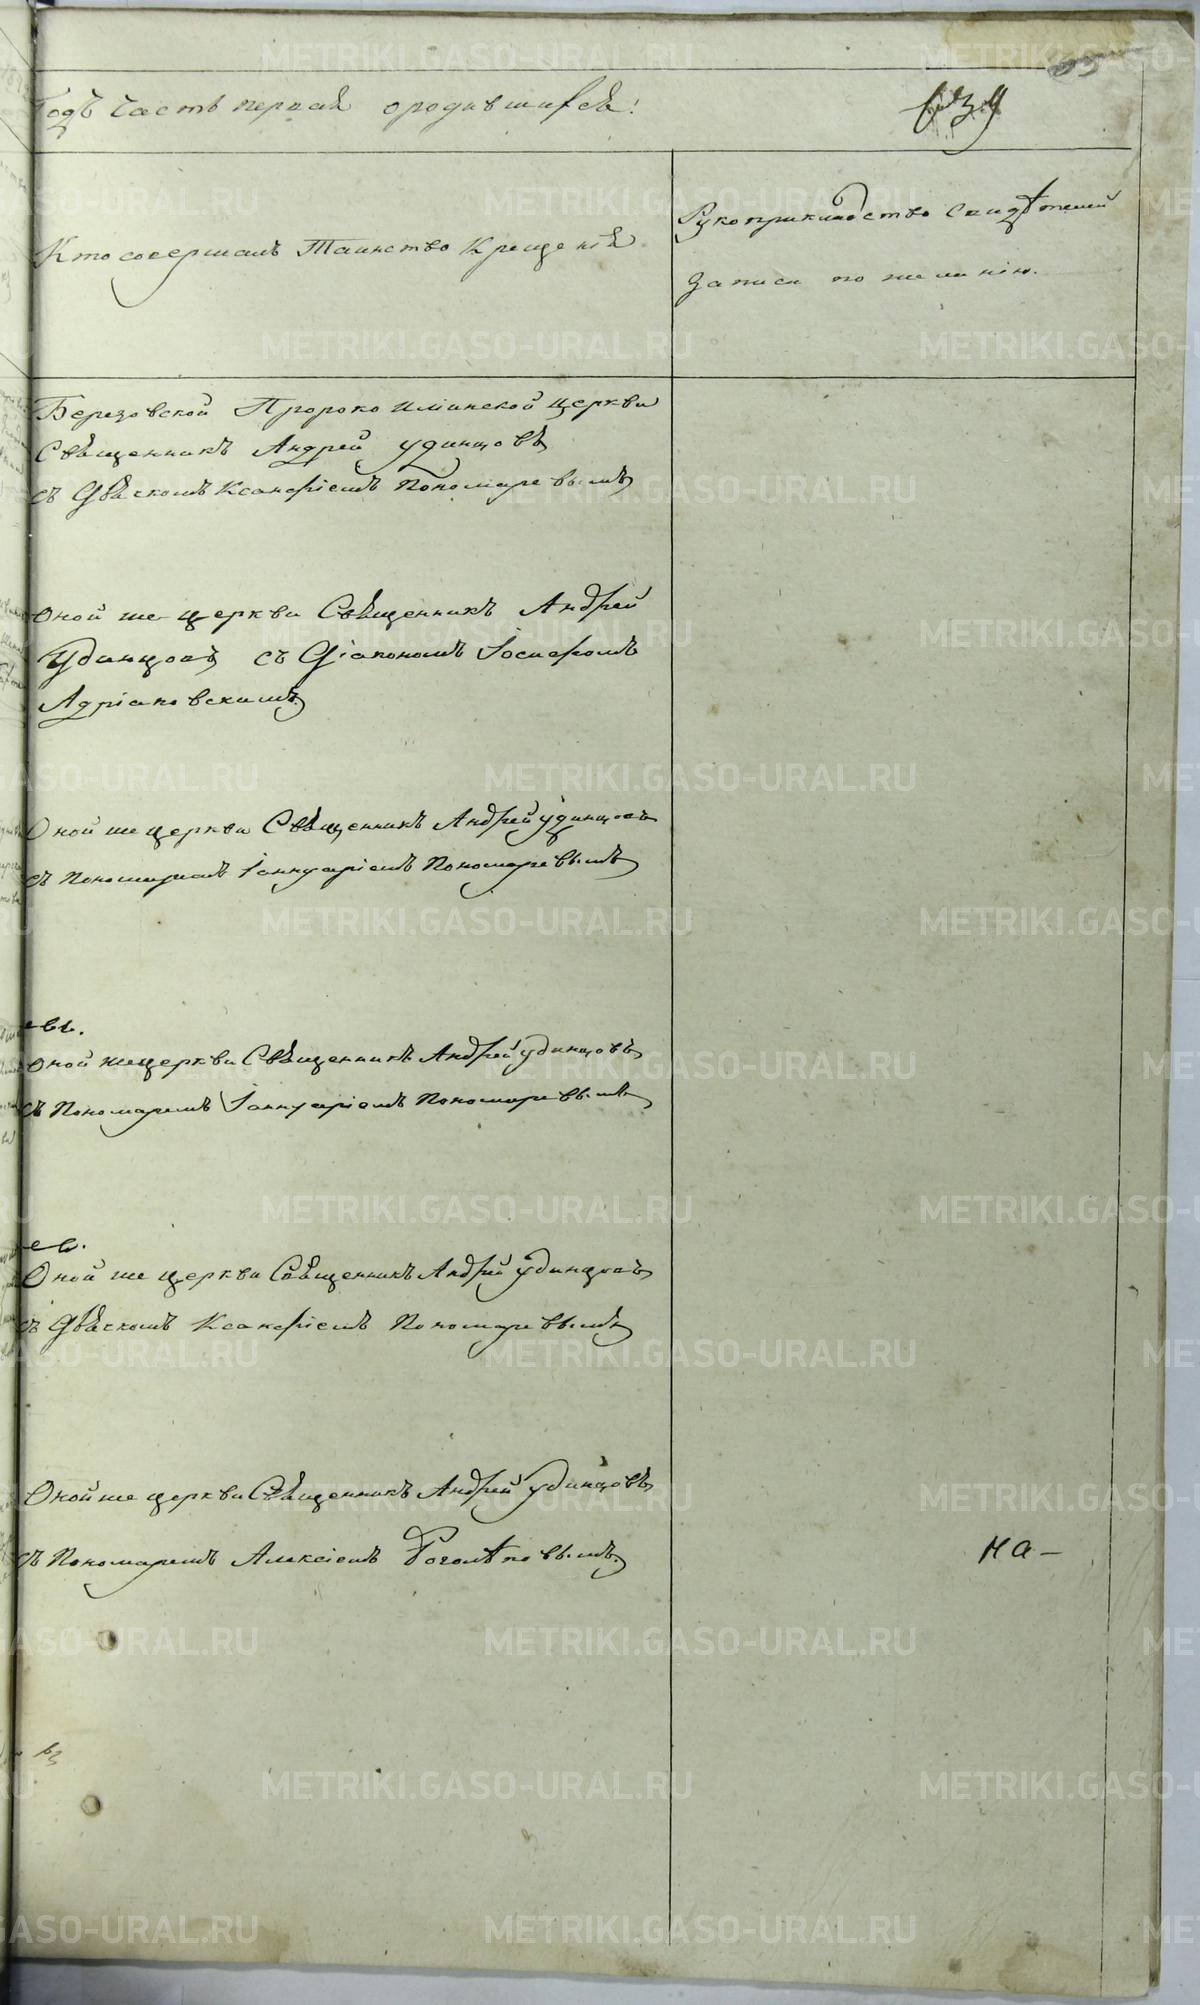 Годъ Часть первая о родившихся:
639
Кто совершалъ Таинство Крещенія
Рукоприкладство Свидѣтелей
записи по желанію.
Березовской Пророко Илiинской церкви
Священникъ Андрей Удинцовъ
съ Дьячкомъ Ксанфіемъ Пономаревымъ
Оной же церкви Священникъ Андрей
Удинцовъ съ Діакономъ Іосифомъ
Адріановскимъ
Оной же церкви Священникъ Андрей Удинцовъ
съ Пономаремъ Іаннуаріемъ Пономаревымъ
евъ.
Оной же церкви Священникъ Андрей Удинцовъ
съ Пономаремъ Іаннуаріемъ Пономаревымъ
ев.
Оной же церкви Священникъ Андрей Удинцовъ
съ Дьячкомъ Ксанфіемъ Пономаревымъ
Оной же церкви Священникъ Андрей Удинцовъ
съ Пономаремъ Алексіемъ Боголѣповымъ
на-
METRIKI.GASO-URAL.RU